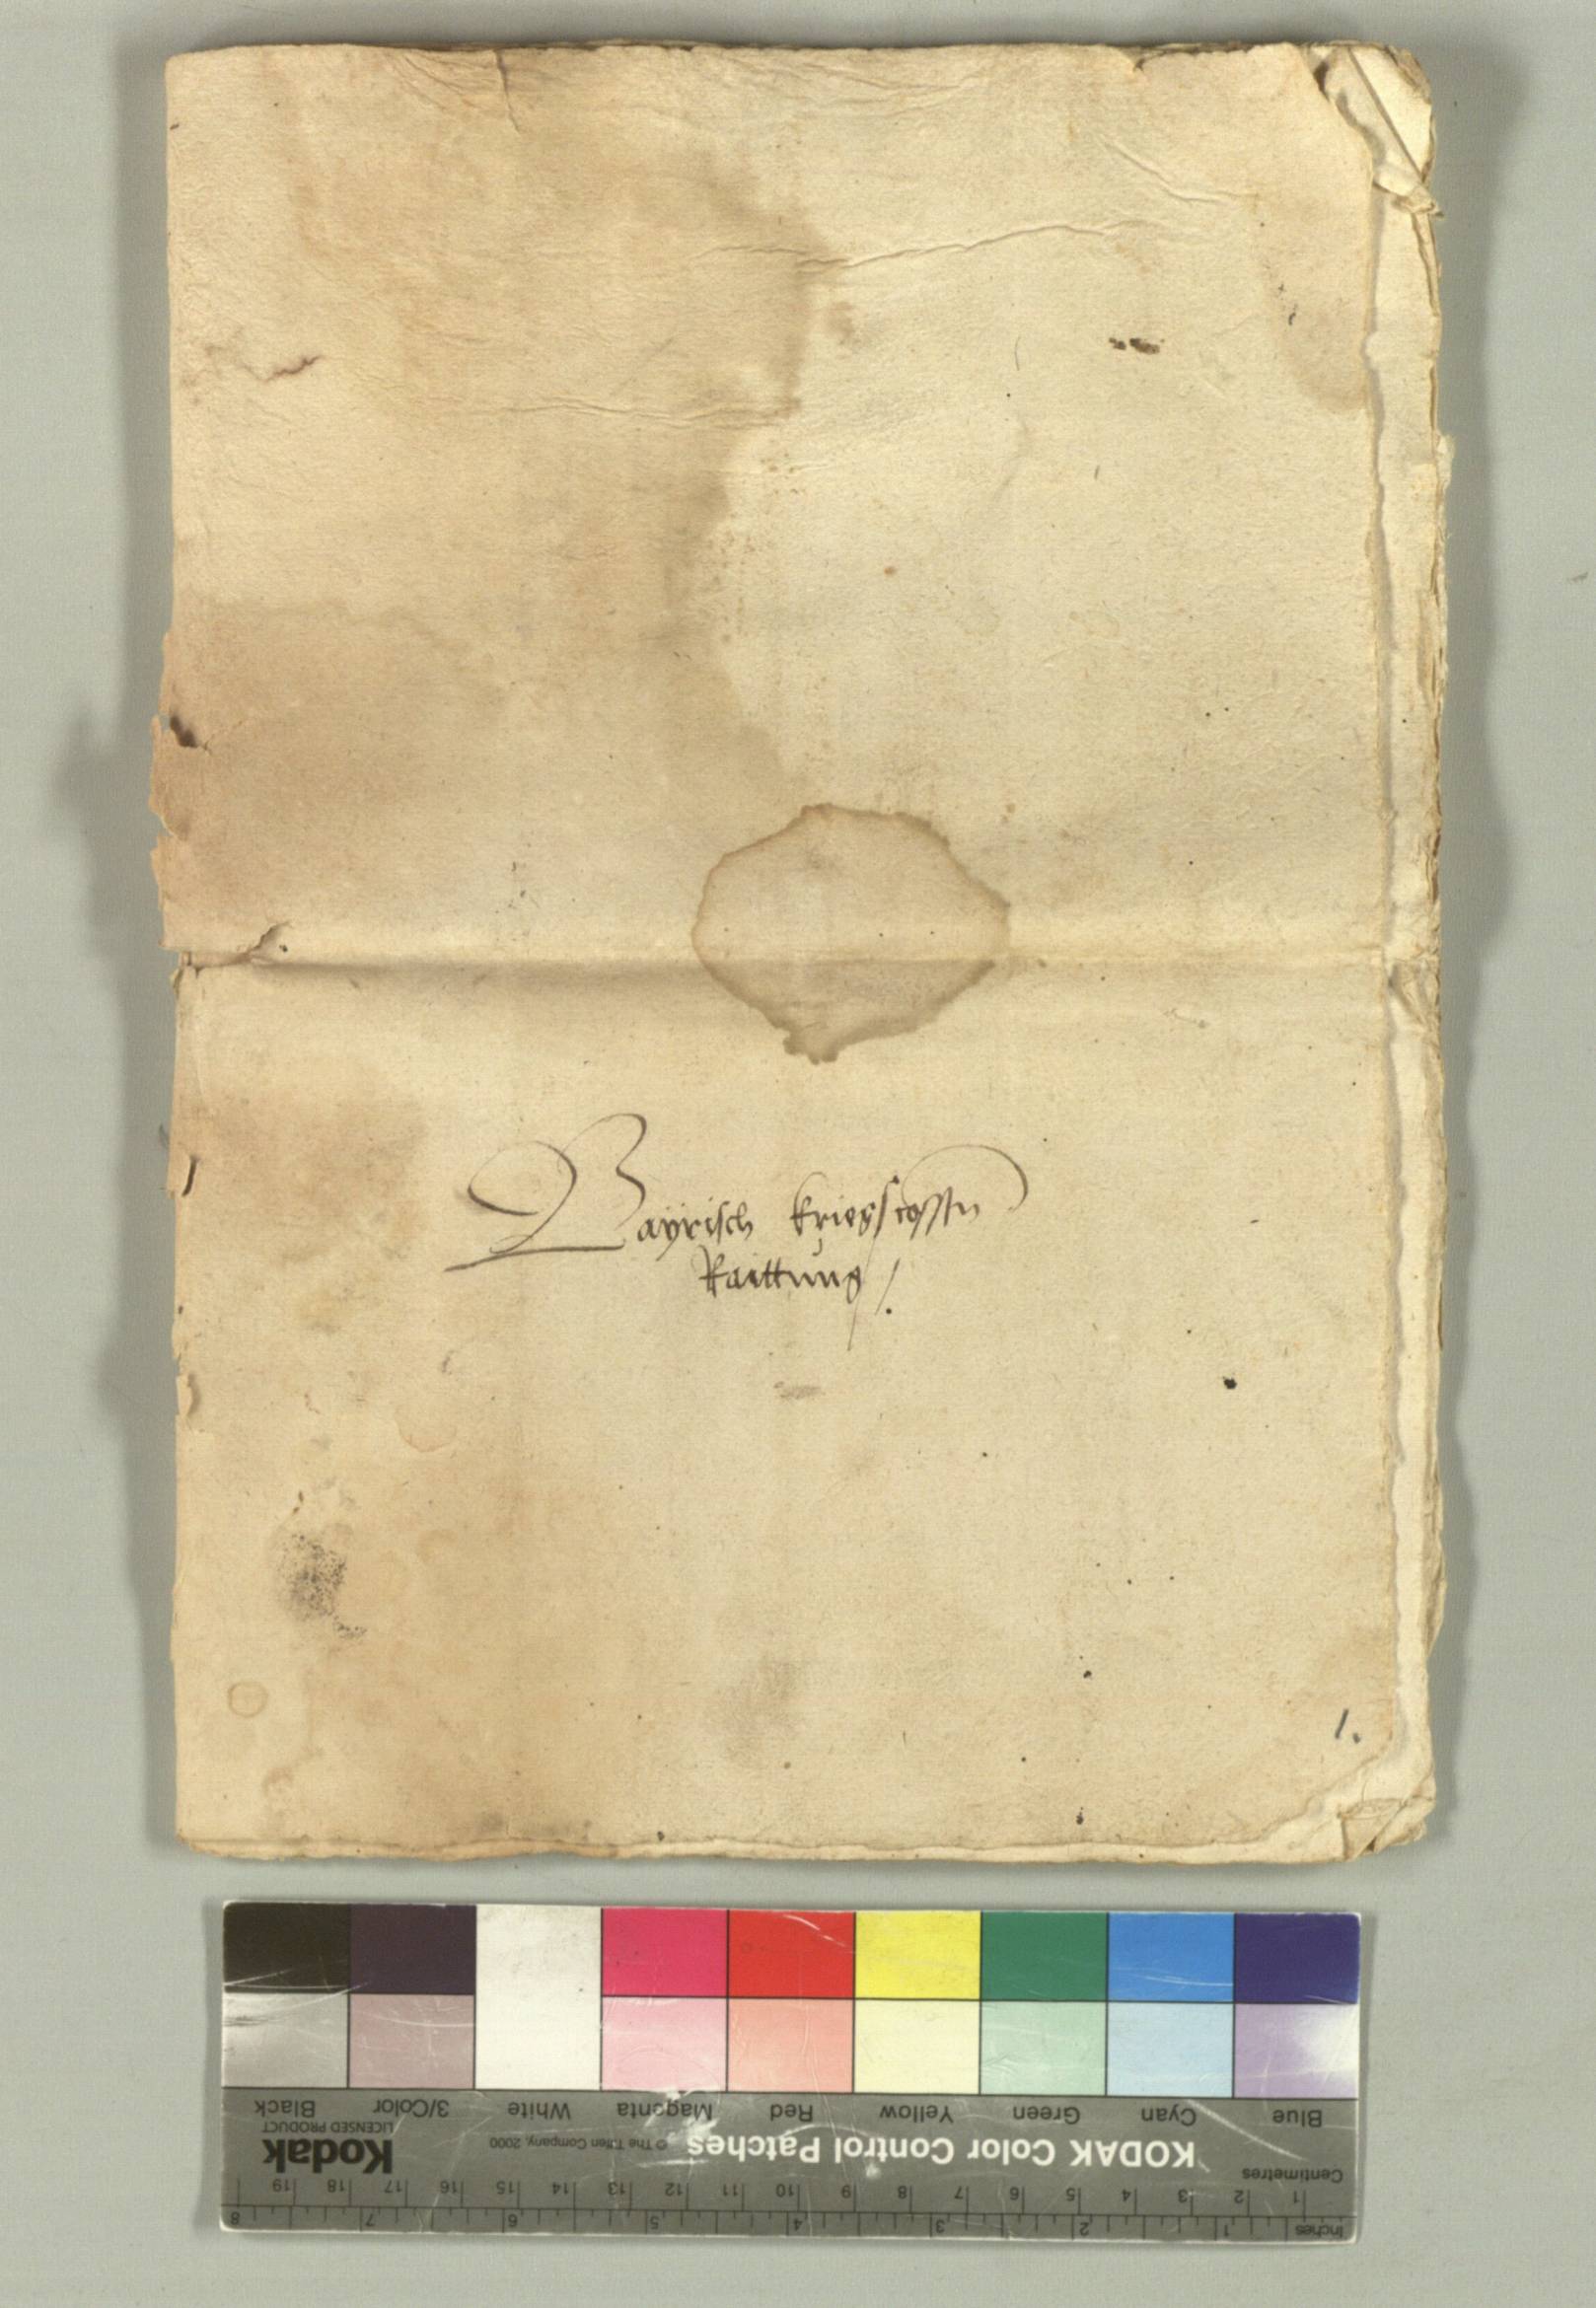 Bayrisch kriegscosstn
Raittung /.
1.
Black
3/Color
White
Magenta
Red
Yellow
Green
Cyan
Blue
Kodak
LICENSED PRODUCT
KODAK Color Control Patches
© The Tiffen Company, 2000
Centimetres
1 2 3 4 5 6 7 8 9 10 11 12 13 14 15 16 17 18 19
Inches
1 2 3 4 5 6 7 8